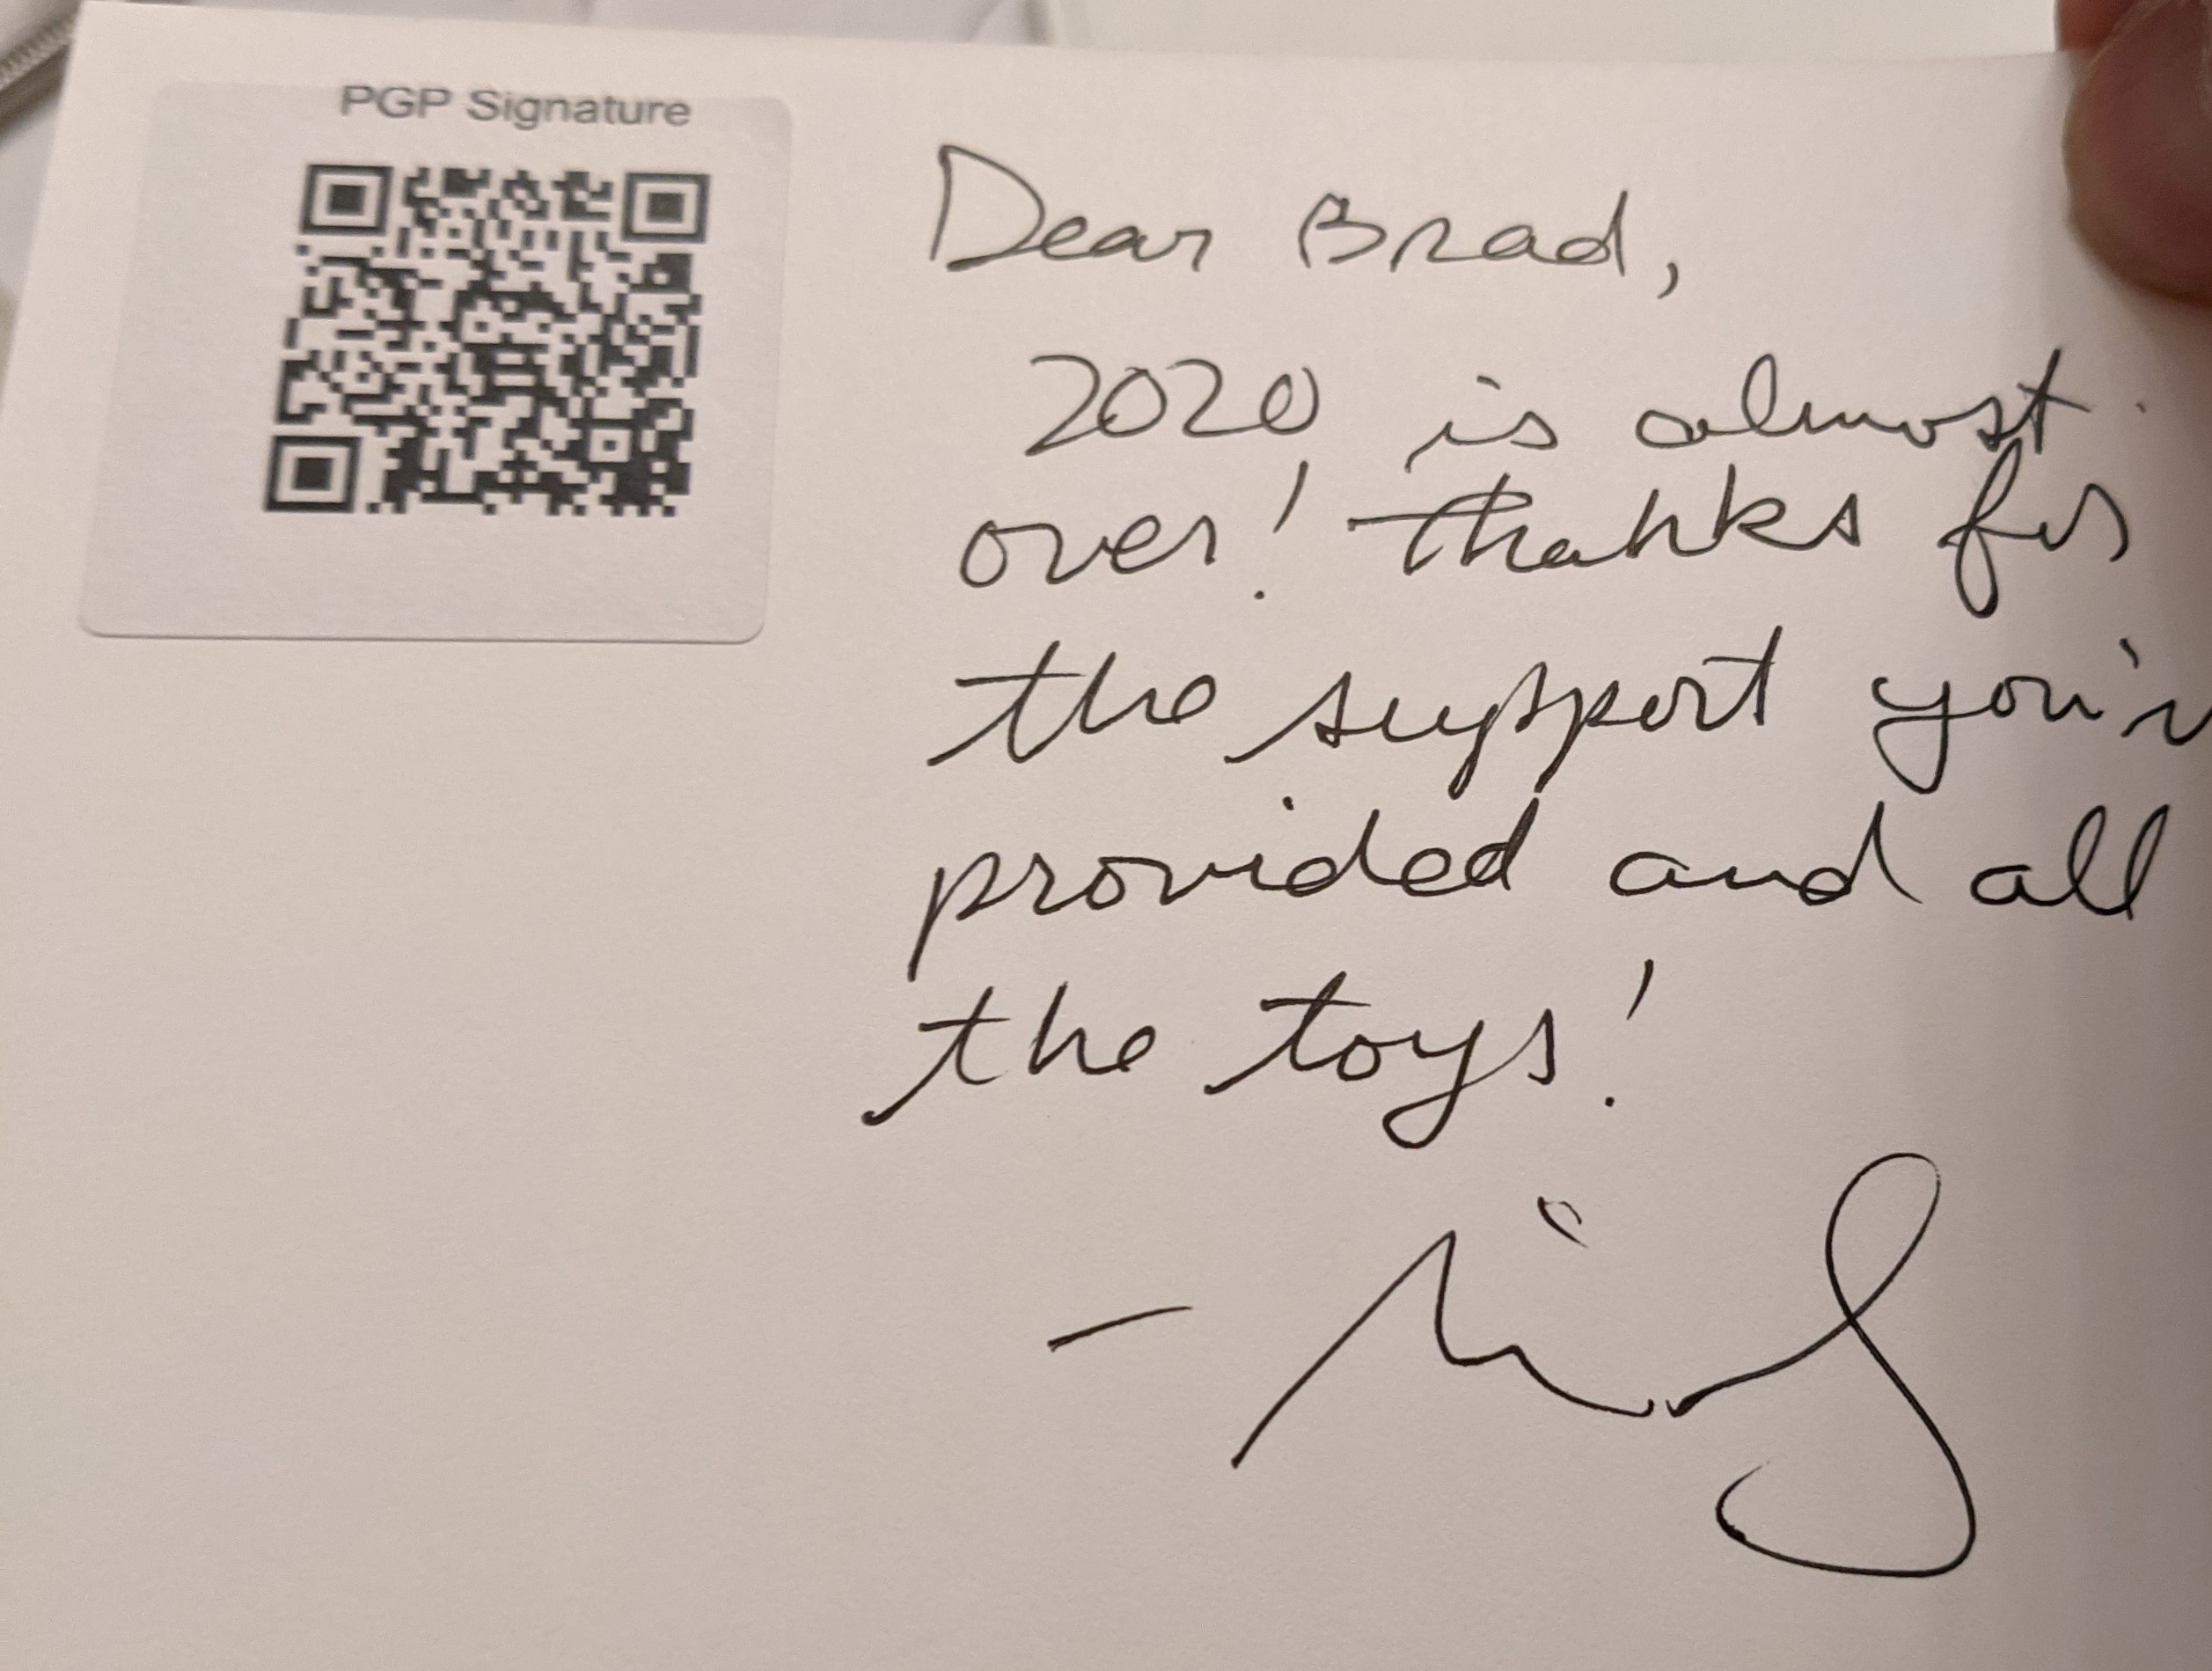 PGP Signature
Dear Brad,
2020 is almost
over! Thanks for
the support you'v
provided and all
the toys!